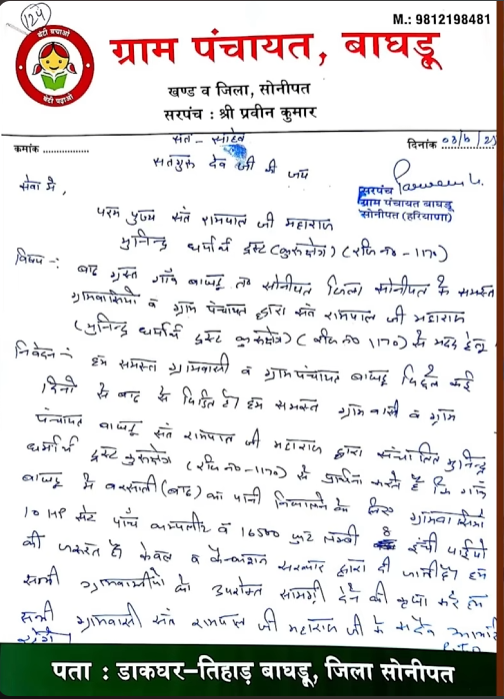 124
M.: 9812198481
बेटी बचाओ
बेटी पढ़ाओ
ग्राम पंचायत, बाघड़ू
खण्ड व जिला, सोनीपत
सरपंच : श्री प्रवीन कुमार
क्रमांक ..................
दिनांक
सत - साहेब
सतगुरु देव जी की जय
सेवा में,
सरपंच
ग्राम पंचायत बाघडू
सोनीपत (हरियाणा)
परम पुज्य संत रामपाल जी महाराज
मुनिन्द्र धर्मार्थ ट्रस्ट (कुरुक्षेत्र) (रजि न० - 1170)
विषय -: बाढ़ ग्रस्त गाँव बाघडू त० सोनीपत जिला सोनीपत के समस्त
ग्रामवासियो व ग्राम पंचायत द्वारा संत रामपाल जी महाराज
(मुनिन्द्र धर्मार्थ ट्रस्ट कुरुक्षेत्र) (रजि न० 1170) से मदद हेतू
निवेदन -: हम समस्त ग्रामवासी व ग्राम पंचायत बाघडू पिछले कई
दिनो से बाढ से पिडित है। हम समस्त ग्राम वासी व ग्राम
पंचायत बाघडू संत रामपाल जी महाराज द्वारा संचालित मुनिन्द्र
धर्मार्थ ट्रस्ट कुरुक्षेत्र (रजि न० - 1170) से प्रार्थना करते है कि गांव
बाघडू मे बरसाती (बाढ) का पानी निकालने के लिए ग्रामवासियो
10 HP सेट पाँच कम्पलीट व 16500 फुट लम्बी 8 इंची पाईपो
की जरूरत है। केवल सरकार द्वारा दी जानी है। हम
सभी ग्रामवासीयो को उपरोक्त सामग्री देने की कृपा करे हम
सभी ग्रामवासी संत रामपाल जी महाराज जी के सदैव आभारी
रहेंगे
P.T.O
पता : डाकघर-तिहाड़ बाघडू, जिला सोनीपत